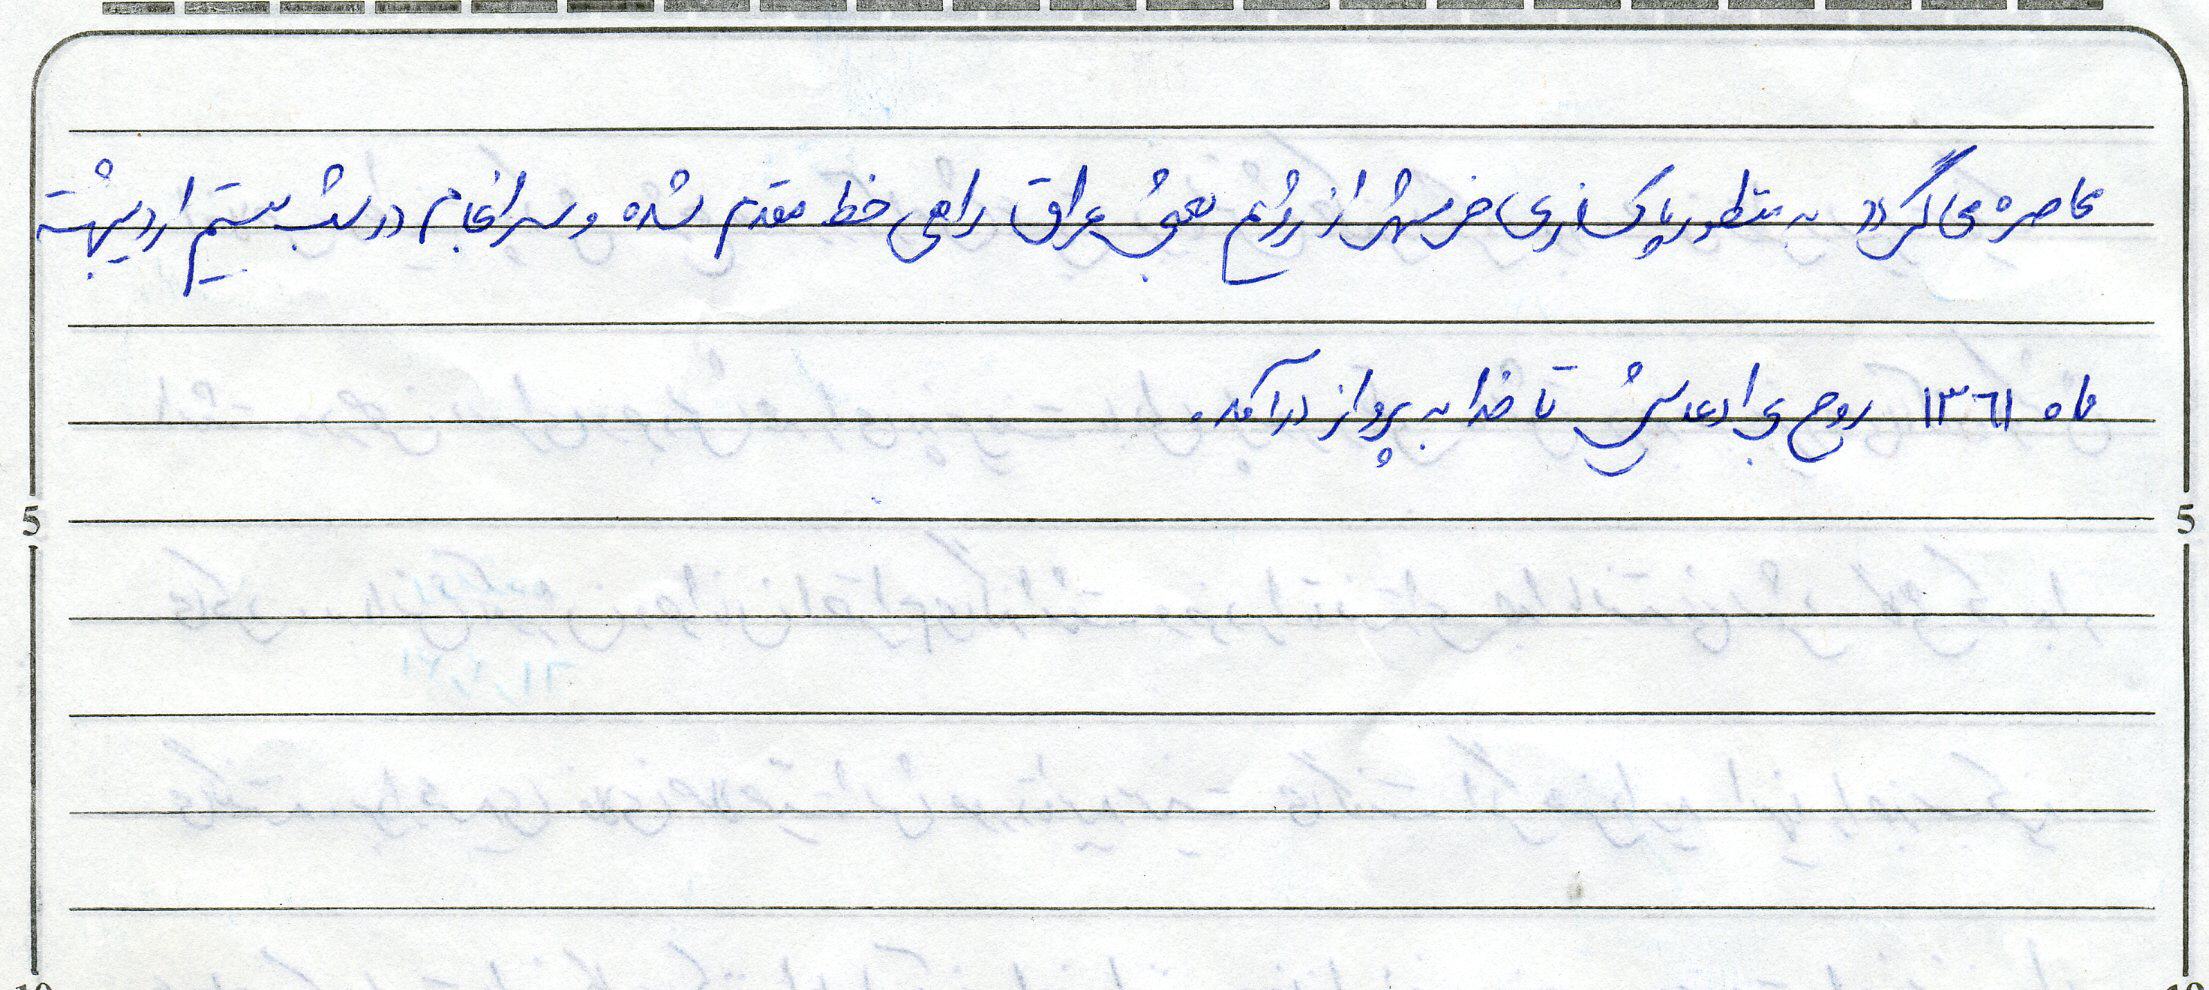 محاصره می گردد به منظور پاکسازی خرمشهر از رژیم بعثی عراق راهی خط مقدم شده و سرانجام در شب بیستم اردیبهشت
ماه ۱۳۶۱ روح بی ادعایش تا خدا به پرواز درآمد.
5
5